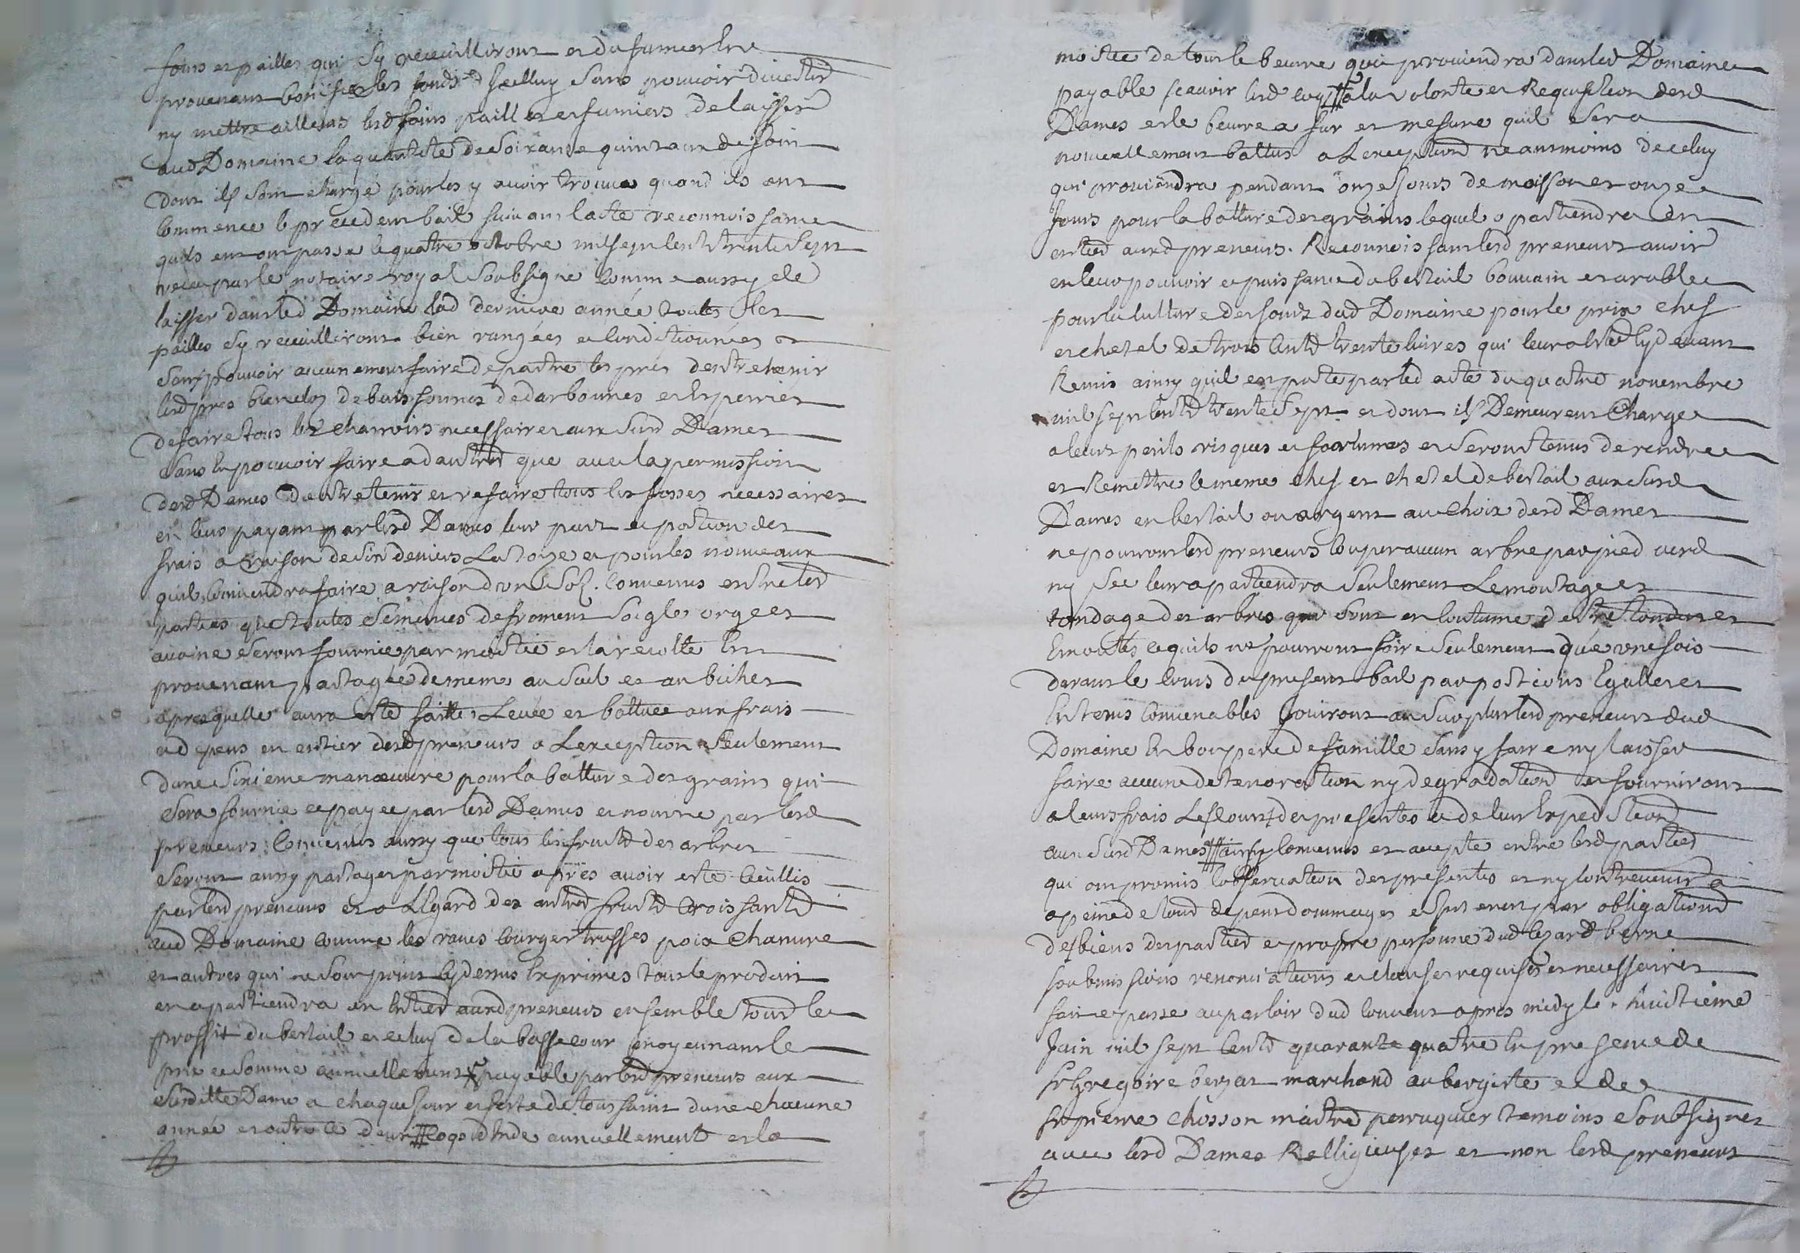 foins et pailles qui sy receuilliront et du fumier en
provenant bonifier les fonds dicelluy sans pouvoir divertir
ny mettre ailleurs lesd foins pailles et fumiers de laisser
aud Domaine la quantité de soixante quintaux de foin
dont ils sont chargé pour les y avoir trouvé quand ils ont
commencé le précédent bail suivant lacte reconnoissance
quils en ont passé le quatre octobre mil sept cent trente sept
receu par le notaire royal soubsigné comme aussy de
laisser dans led Domaine lad derniere année toutes les
pailles sy receuilliront bien rangées et conditionnées
sans pouvoir aucunement faire depaitre les prés dentretenir
lesd prés bien clos de buissonnés dedarbonnés et espierrés
de faire tous les charrois necessaires aux susd Dames
sans en pouvoir faire a dautres que avec la permission
desd Dames Dentretenir et refaire tous les fossés necessaires
en leur payant par lesd Dames leur part et portion des
frais a raison de six deniers La toize et pour les nouveaux
quil conviendra faire a raison dun sol. Convenus entre led
parties que toutes semences de froment seigle orge et
avoine seront fournie par moitié et la recolte en
provenant partagée de meme au sac et au bichet
apres quelle aura esté faitte Levée et battuee aux frais
et depens en entier desd preneurs a Lexception seulement
dune sixieme manœuvre pour la batture des grains qui
sera fournie et payée par lesd Dames et nourrie par lesd
preneurs. Convenus aussy que tous les fruits des arbres
seront aussy partagés par moitié apres avoir esté cueillis
par lesd preneurs et a Légard des autres fruits croissants
aud Domaine comme les raves courges truffes pois chanvre
et autres qui ne sont point cydessus exprimés tout le produit
en apartiendra en entier auxd preneurs ensemble tout le
proffit du bestail et celuy de la basse cour moyennant le
prix et somme annuellement payable par lesd preneurs aux
susditte Dames a chaque jour et feste de toussaint dune chacune
année et outre ce deux coqs dinde annuellement et la
moitié de tout le beurre qui proviendra dans led Domaine
payable scavoir lesd coqs a la volonté et Requisition desd
Dames et le beurre a fur et mesure quil sera
nouvellement battus a Lexception neantmoins de celuy
qui proviendra pendant onze jours de moisson et onze
jours pour la batture des grains lequel apartiendra en
entier auxd preneurs. Reconnoissant lesd preneurs avoir
en leur pouvoir et puissance du bestail bouvain et arable
pour la culture des fonds dud Domaine pour le prix chef
et chetel de trois cents trente livres qui leur a esté cydevant
Remis ainsy quil est porté par led acte du quatre novembre
mil sept cents trente sept et dont ils Demeurent chargé
a leurs perils risques et fortunes et seront tenus de rendre
et Remettre le meme chef et chetel de bestail aux susd
Dames en bestail ou argent au choix desd Dames
ne pourront lesd preneurs couper aucun arbre par pied verd
ny sec leur apartiendra seulement Lemontage et
tondage des arbres qui sont en coutume destre tondus et
Emontés ce quils ne pourront faire seulement que une fois
durant le cours du present bail par portions Egalles et
en tems convenables jouiront au surplus lesd preneurs dud
Domaine en bon pere de famille sans y faire ny laisser
faire aucune deterioration ny degradation et fourniront
a leurs frais Les des presentes et de leur Expedition
aux susd Dames ainsy convenus et accepté entre lesd parties
qui ont promis lobservation des presentes et ny contrevenir a
a peine de tous depens dommages et par obligations
des biens des parties et propre personne dud berne
soubmissions renonciations et clauses requises et necessaires
fait et passé au parloir dud couvent apres midy le huictieme
Juin mil sept cents quarante quatre en presence de
sr Gregoire bersat marchand aubergiste et de
sr pierre chosson maitre perruquier temoins soubsignés
avec lesd Dames Relligieuses et non lesd preneurs